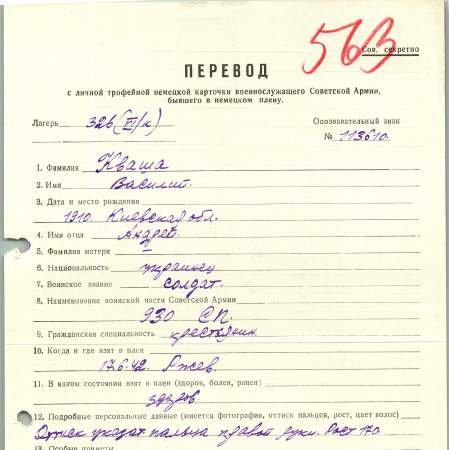 563
Сов. секретно
ПЕРЕВОД
с личной трофейной немецкой карточки военнослужащего Советской Армии,
бывшего в немецком плену.
Лагерь 326 (VI/к) Опознавательный знак
№ 113610.
1. Фамилия Кваша
2. Имя Василий.
3. Дата и место рождения
1910. Киевская обл.
4. Имя отца Андрей.
5. Фамилия матери —
6. Национальность украинец
7. Воинское звание солдат.
8. Наименование воинской части Советской Армии
930 СП.
9. Гражданская специальность крестьянин.
10. Когда и где взят в плен
17.6.42. Ржев.
11. В каком состоянии взят в плен (здоров, болен, ранен)
здоров.
12. Подробные персональные данные (имеется фотография, оттиск пальцев, рост, цвет волос)
Оттиск указат. пальца правой руки. Рост 170.
13. Особые приметы